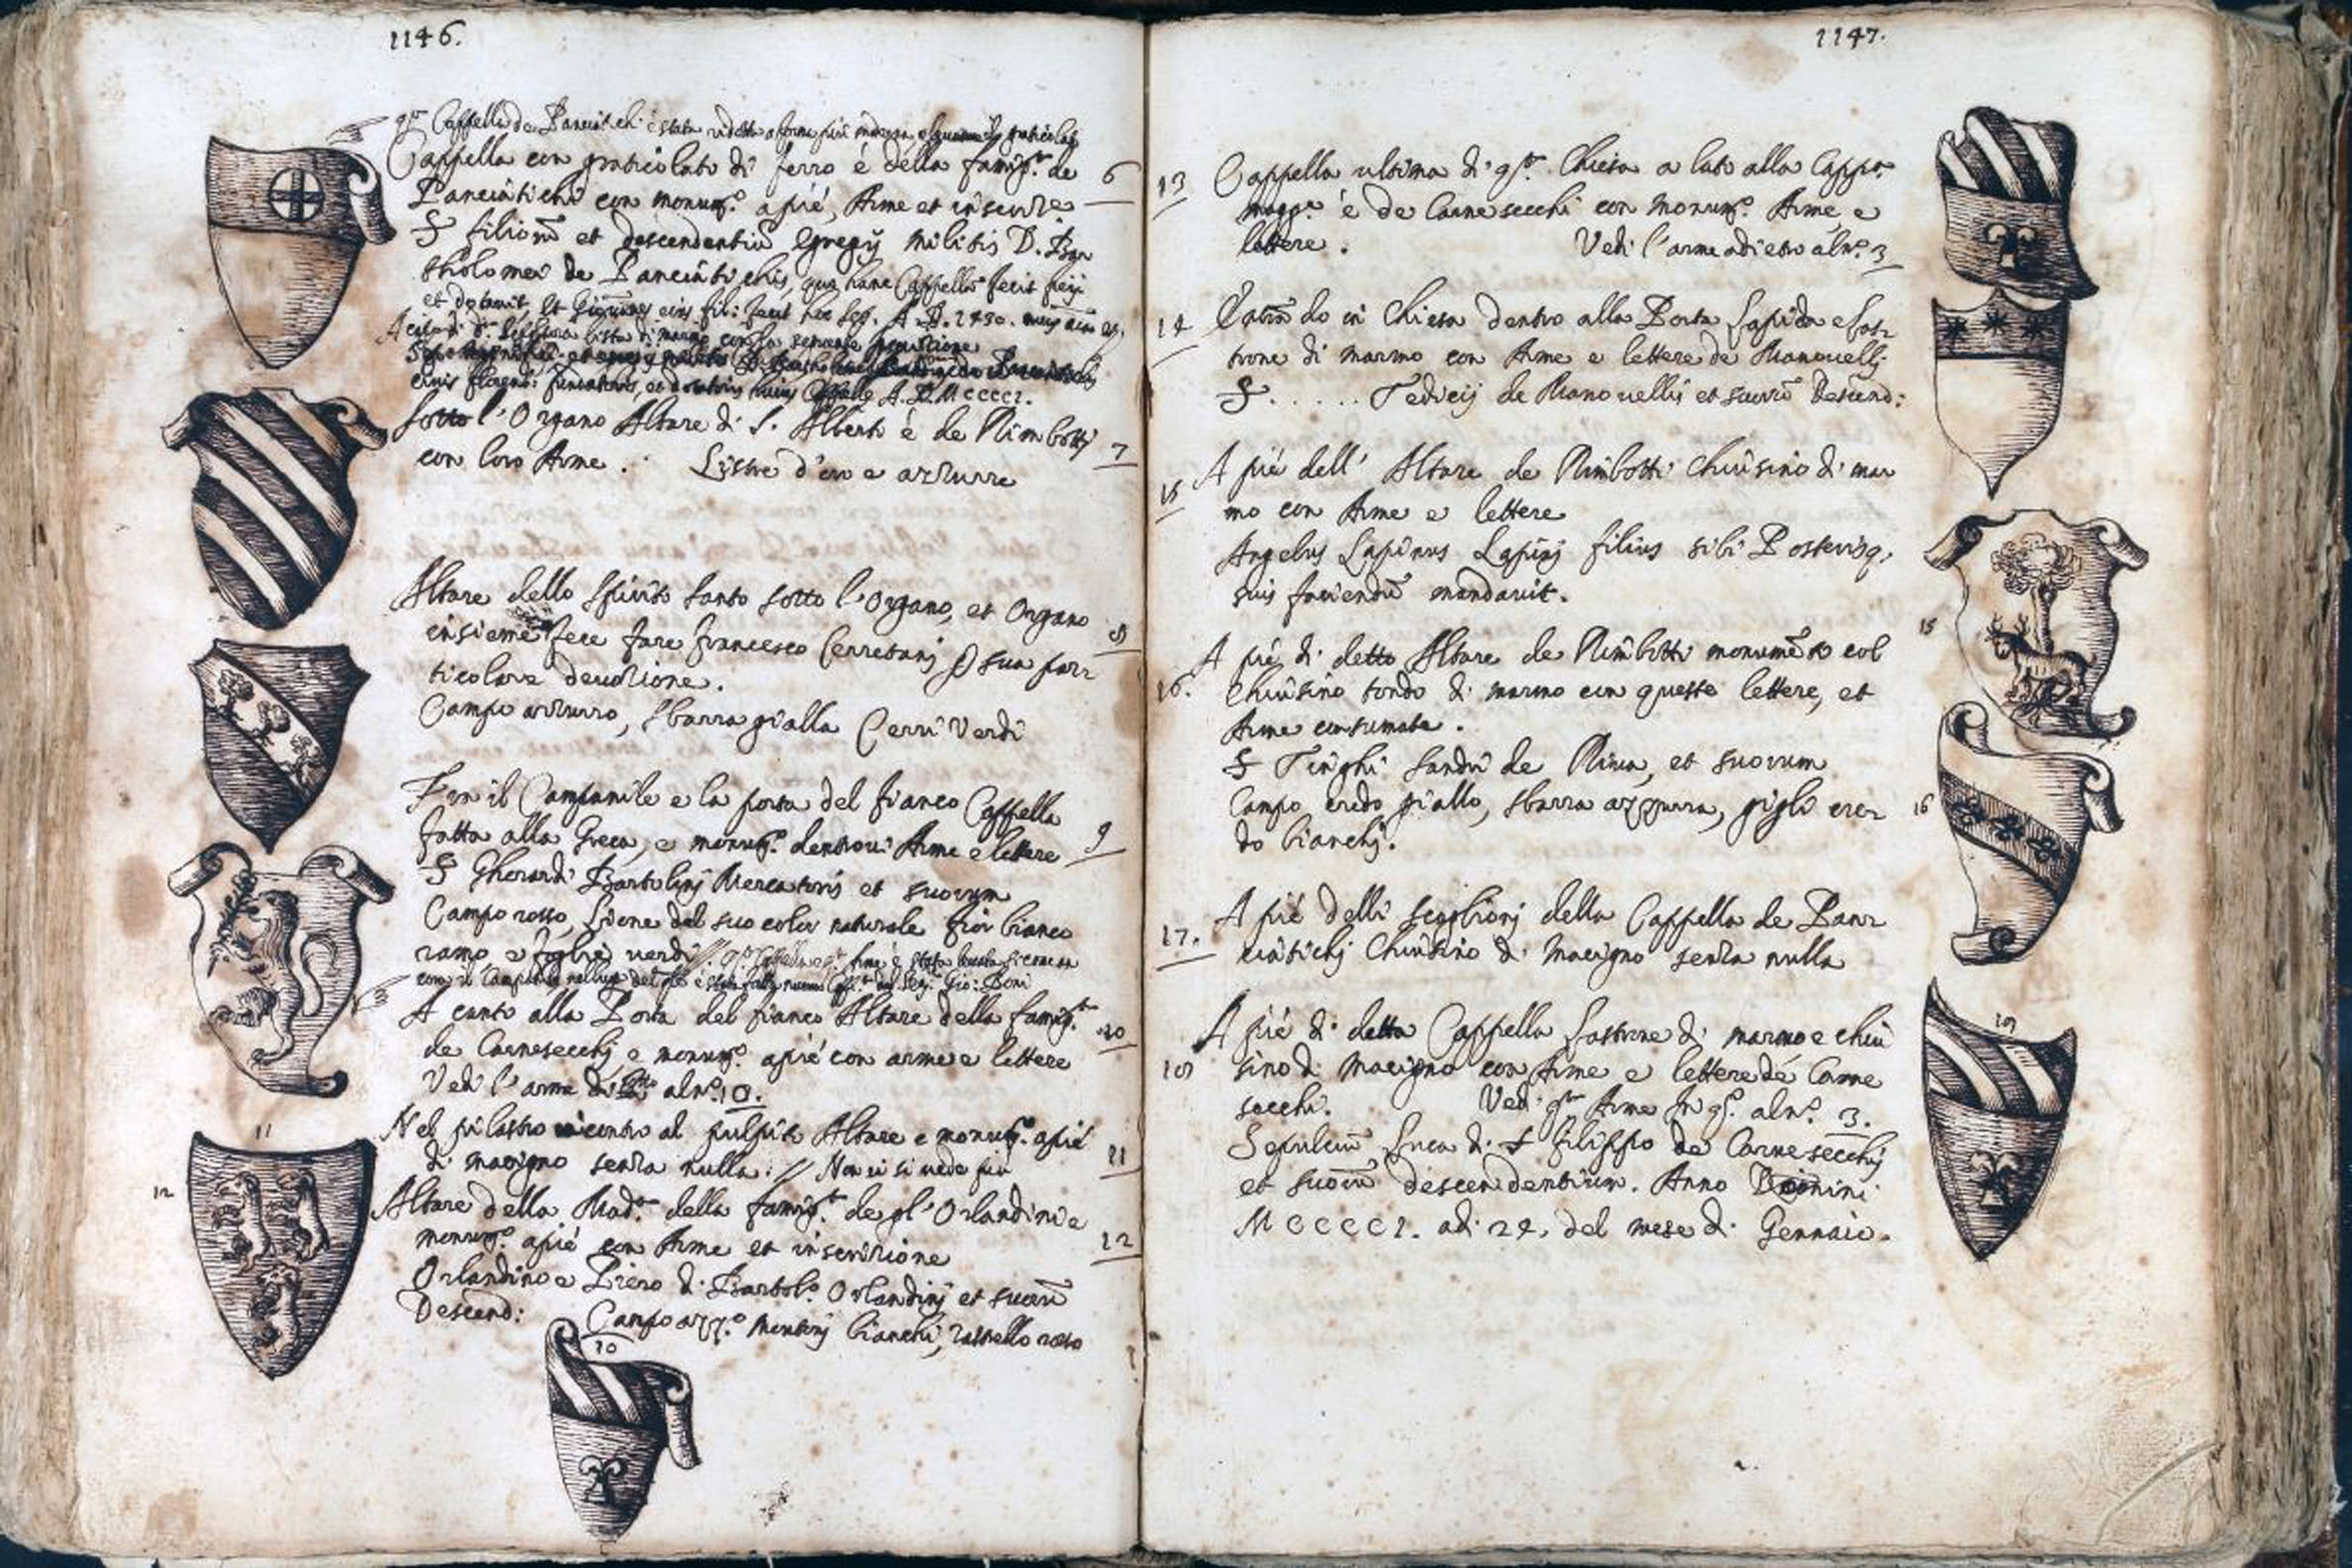 1146.
Cappella de Panciatichi è stata ridotta a forma più moderna
Cappella con graticolato di ferro é della famig.ª de
6
Panciatichi con monum.º apié, Arme et inscritt.e
S filiorũ et descendentiũ Egregij Militis D. Bar
tholomei de Panciatichis, qui hanc Cappellã fecit fieri
et dotavit, et eius fil: fecit hoc sep. A. D. 1430.
con la seguente inscrittione
A. D. MCCCCI.
sotto l'Organo Altare di S. Alberto é de Rimbotti
7
con loro Arme. Listre d'oro e azzurre
Altare dello Spirito Santo sotto l'Organo, et Organo
8
insieme fece fare Francesco Cerretani P sua parr
ticolare devotione.
Campo azzurro, sbarra gialla Cerri verdi
Fra il Campanile e la porta del fianco Cappella
fatta alla Greca, e monum.º dentrovi Arme e lettere
9
S Gherardi Bartolinj Mercatoris et suorum
Campo rosso, Lione del suo color naturale fior bianco
ramo e foglie verdi
Gio: Boni
A canto alla Porta del fianco Altare della famig.ª
10
de Carnesecchj e monum.º apié con arme e lettere
Vedi l'arme alnº. 10.
Nel pilastro incontro al pulpito Altare e monum.º apié
11
di macigno senza nulla. // Non vi si vede più
Altare della Mad.ª della famig.ª de gl'Orlandini e
monum.º apié con Arme et inscritione
12
Orlandino e Piero di Bartol.º Orlandinj et suorũ
Descend: Campo azz.º Montonj bianchi, rastello rosso
11
12
10
1147.
13 Cappella ultima di q.ª Chiesa a lato alla Capp.ª
magg.e é de Carnesecchi con monum.º Arme e
lettere. Vedi l'arme adietro alnº. 3
14 Entrando in Chiesa dentro alla Porta Lapida e Las-
trone di marmo con Arme e lettere de Manovellj
S. . . . . . Tedicij de Manovellis et suorũ Descend:
15 A pié dell' Altare de Rimbotti Chiusino di mar
mo con Arme e lettere
Angelus Lapinus Lapinj filius sibi Posterisq.
suis faciendũ mandavit.
16. A pié di detto Altare de Rimbotti monumẽto col
Chiusino tondo di marmo con queste lettere, et
Arme consumata.
S Tinghi Sandri de Riva, et suorum
Campo credo giallo, sbarra azzurra, gigli cre-
do bianchj.
17. A pié delli scaglionj della Cappella de Panr
ciatichj Chiusino di Macigno senza nulla
18 A pié di detta Cappella Lastrone di marmo e chiu
sino di Macigno con Arme e lettere de Carne
secchi. Vedi q.ª Arme alnº. 3.
Sepulcrũ Luca di S Filippo da Carnesecchj
et suorũ descendentium. Anno Domini
MCCCCI. adi 24. del mese di Gennaio.
15
16
18